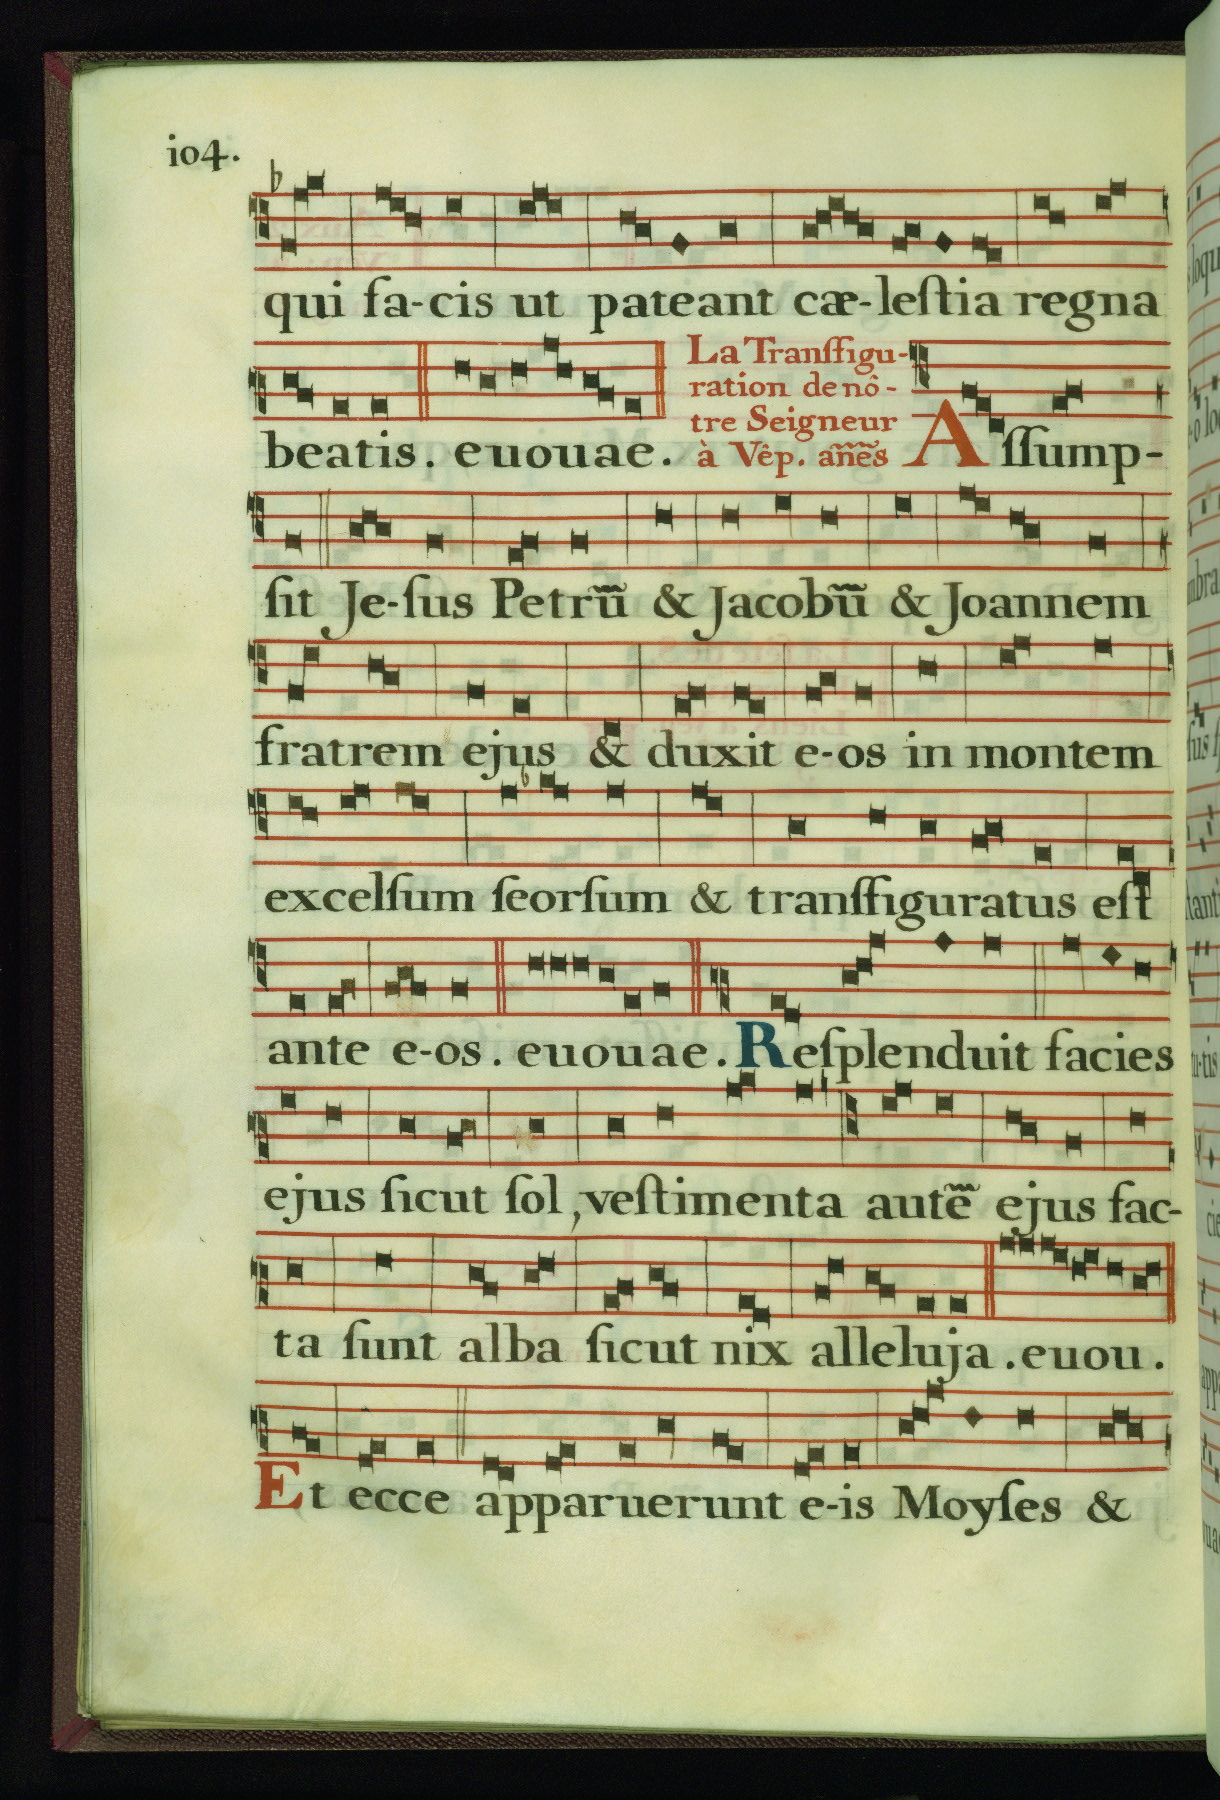 io4.
qui fa-cis ut pateant cæ-leſtia regna
beatis. euouae.
La Tranſfigu-
ration de nô-
tre Seigneur
à Vêp. añẽs
Aſſump-
ſit Je-ſus Petrũ & Jacobũ & Joannem
fratrem ejus & duxit e-os in montem
excelſum ſeorſum & tranſfiguratus eſt
ante e-os. euouae. Reſplenduit facies
ejus ſicut ſol, veſtimenta autẽ ejus fac-
ta ſunt alba ſicut nix alleluja. euou.
Et ecce apparuerunt e-is Moyſes &